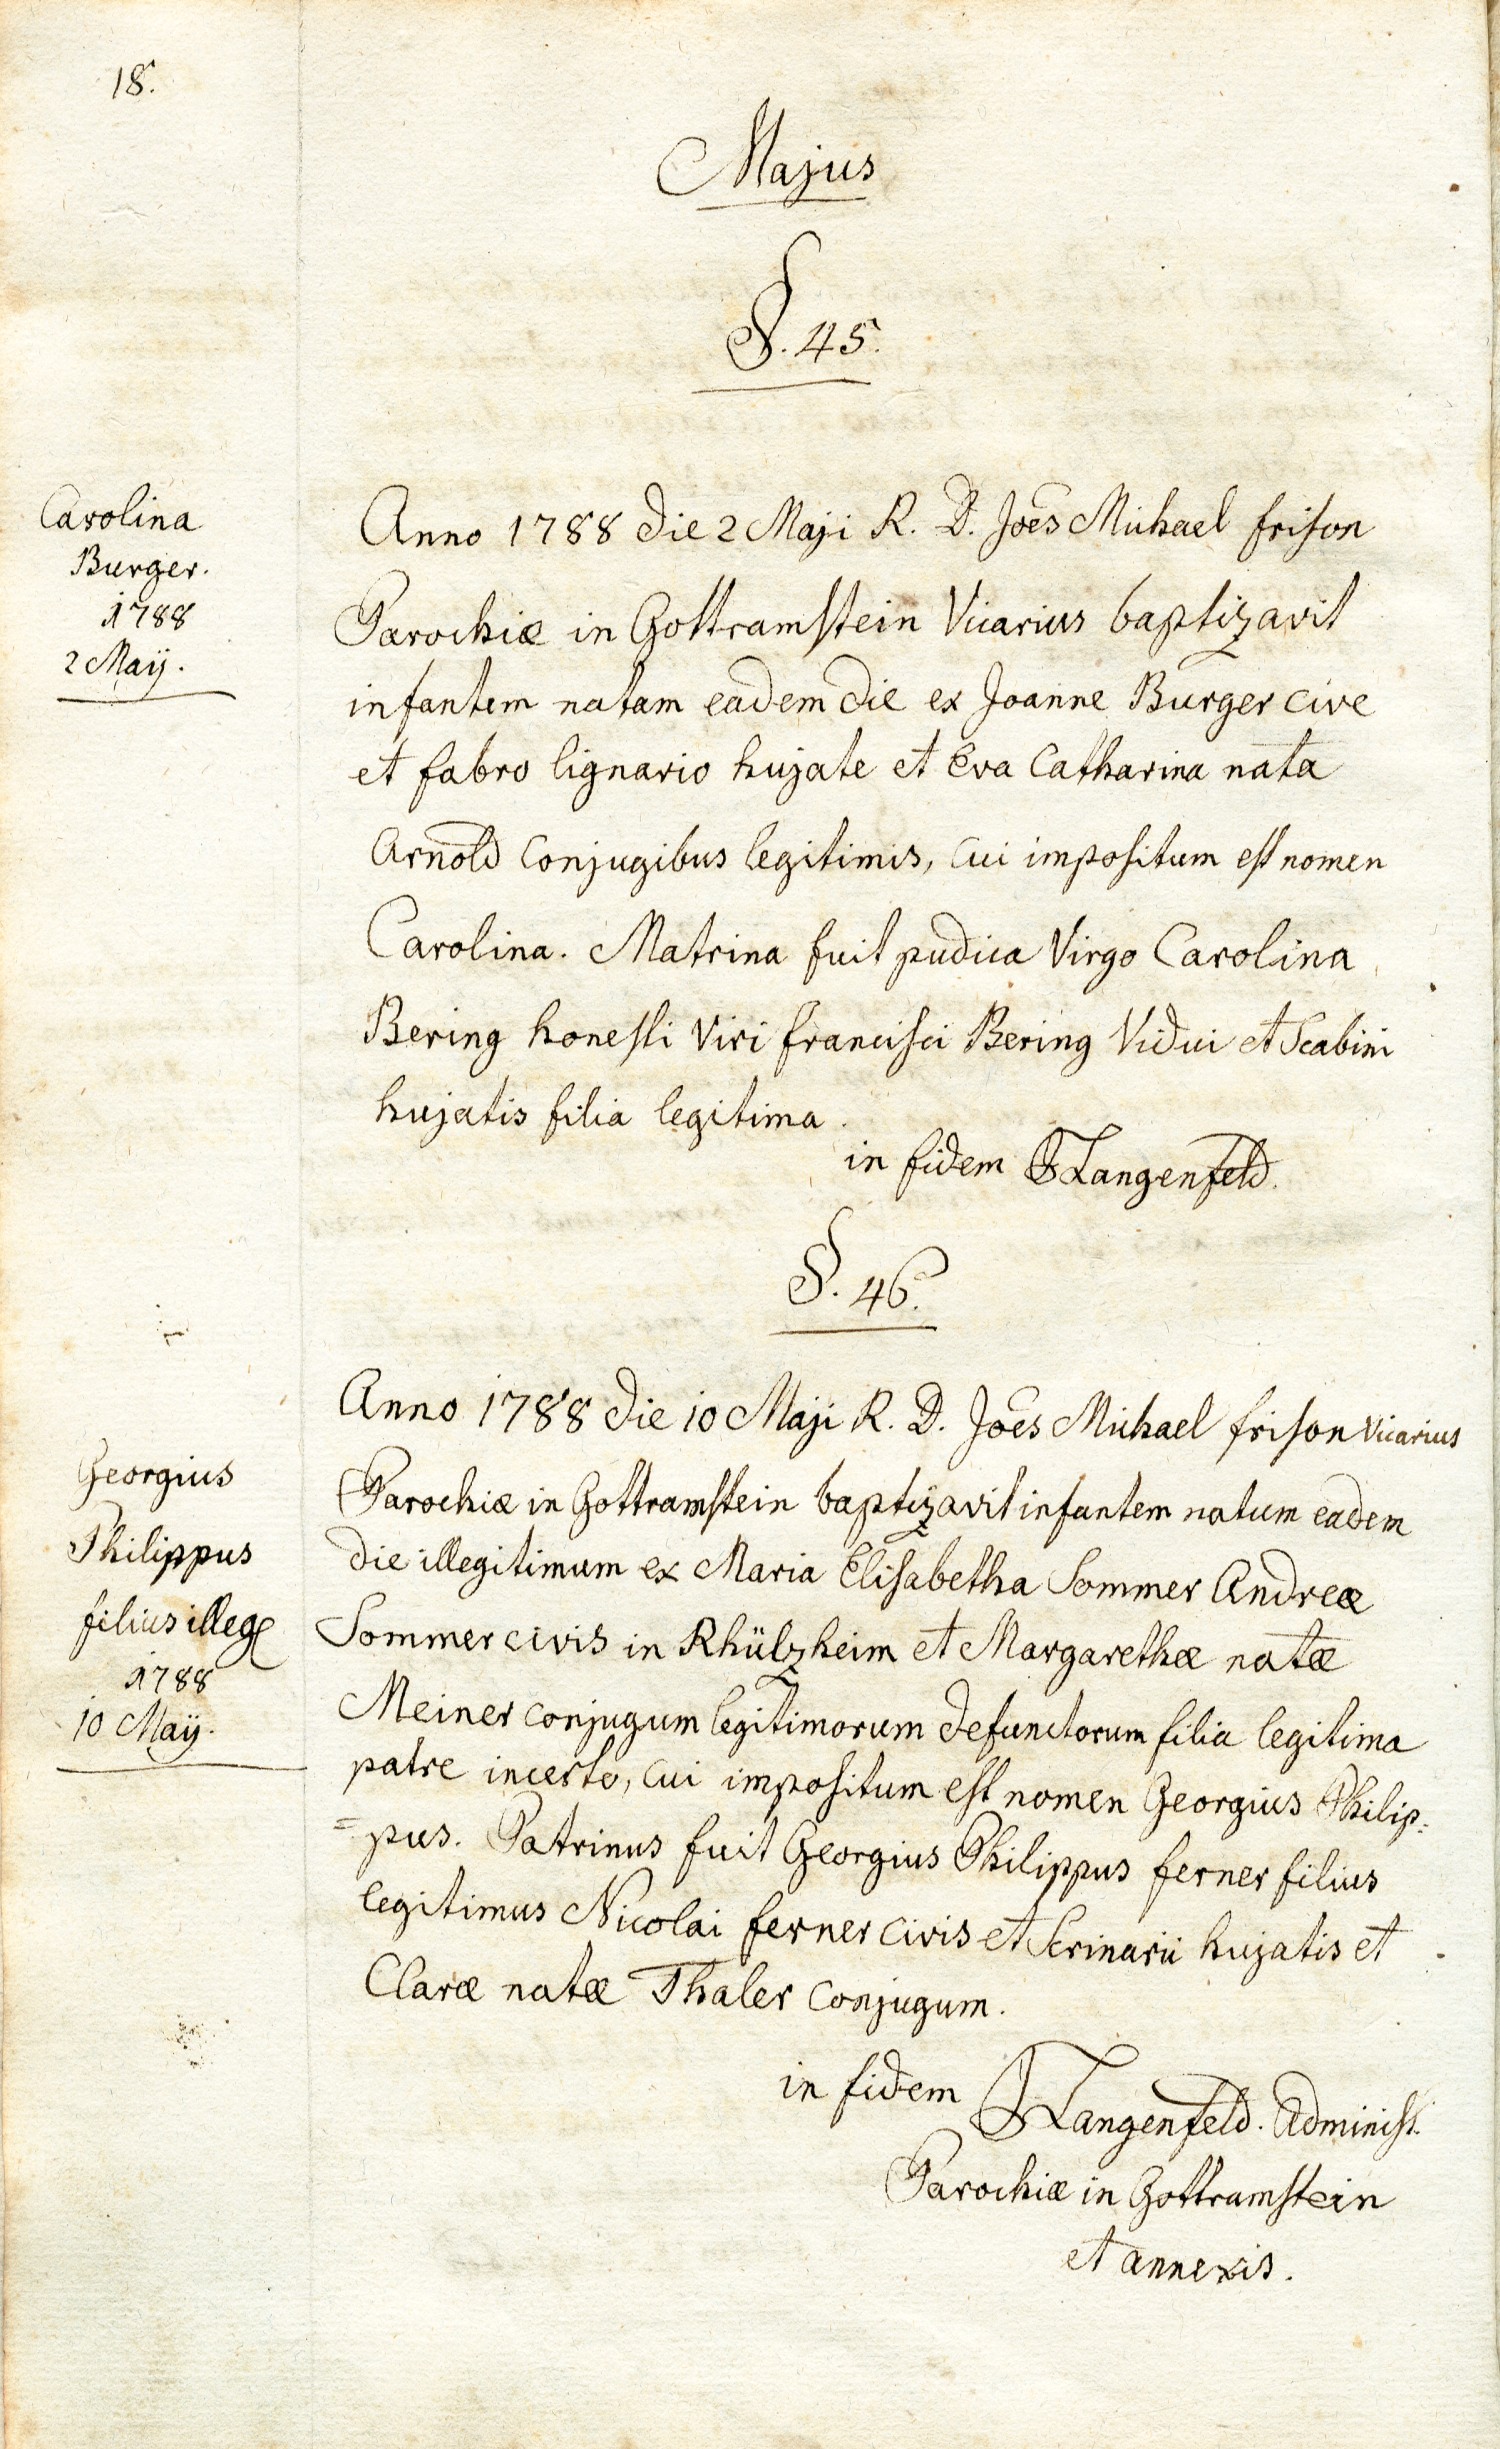 18.
Majus
§. 45.
Carolina
Burger.
1788
2 Maÿ.
Anno 1788 die 2 Maji R. D. Joēs Michael frison
Parochiæ in Gottramstein Vicarius baptizavit
infantem natam eadem die ex Joanne Burger cive
et fabro lignario hujate et Eva Catharina nata
Arnold conjugibus legitimis, cui impositum est nomen
Carolina. Matrina fuit pudica Virgo Carolina
Bering honesti Viri francisci Bering Vidui et Scabini
hujatis filia legitima.
in fidem JLangenfeld.
§. 46.
Georgius
Philippus
filius illeg
1788
10 Maÿ.
Anno 1788 die 10 Maji R. D. Joēs Michael frison Vicarius
Parochiæ in Gottramstein baptizavit infantem natum eadem
die illegitimum ex Maria Elisabetha Sommer Andreæ
Sommer civis in Rhülzheim et Margarethæ natæ
Meiner conjugum legitimorum defunctorum filia legitima
patre incerto, cui impositum est nomen Georgius Philip=
=pus. Patrinus fuit Georgius Philippus ferner filius
legitimus Nicolai ferner civis et Scrinarii hujatis et
Claræ natæ Thaler conjugum.
in fidem JLangenfeld. Administ.
Parochiæ in Gottramstein
et annexis.